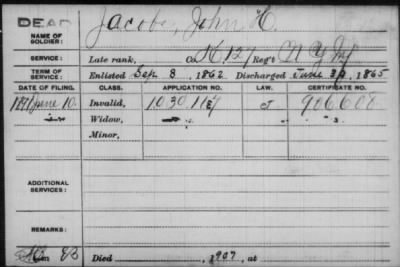 DEAD Jacobs, John H.
NAME OF
SOLDIER:
SERVICE: Late rank, Co. K, 127 Reg't N Y Inf
TERM OF
SERVICE: Enlisted Sep 8, 1862 Discharged June 30, 1865
DATE OF FILING. CLASS. APPLICATION NO. LAW. CERTIFICATE NO.
1891 June 10 Invalid, 1030.117 J 906608
Widow,
Minor,
ADDITIONAL
SERVICES:
REMARKS:
Died 1907, at